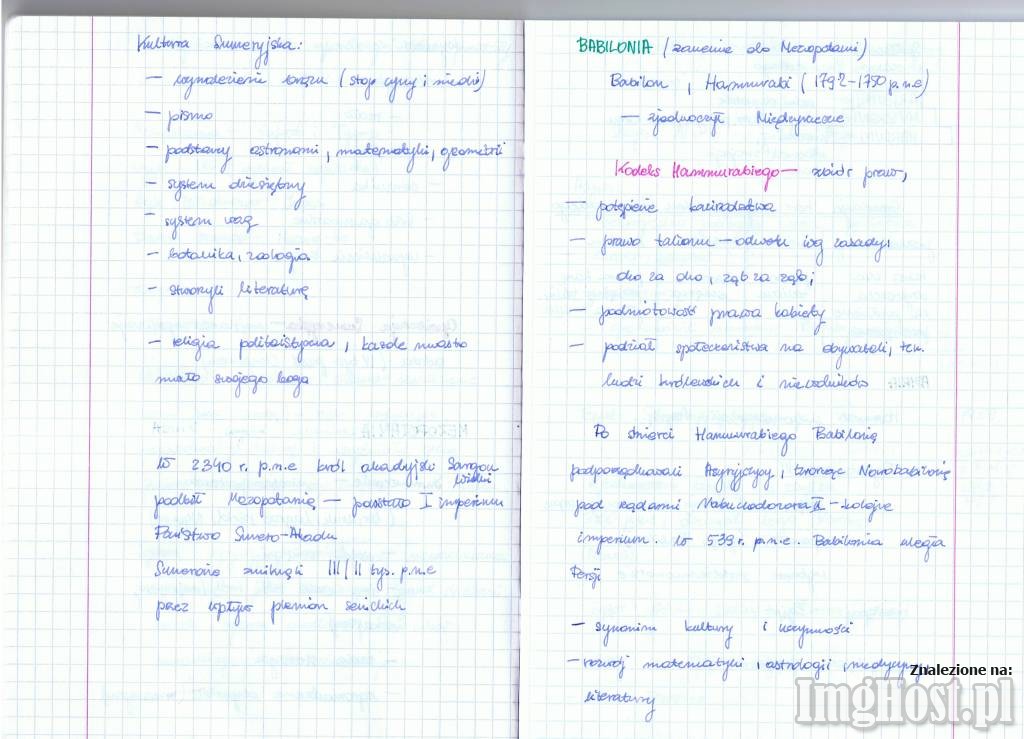 Kultura Sumeryjska:
— wynalezienie brązu (stop cyny i miedzi)
— pismo
— podstawy astronomi, matematyki, geometrii
— system dziesiętny
— system wag
— botanika, zoologia
— stworzyli literaturę
— religia politeistyczna, każde miasto
miało swojego boga
W 2340 r. p.n.e król akadyjski Sargon
Wielki
podbił Mezopotamię — powstało I imperium
Państwo Sumero-Akadu
Sumerowie zniknęli III/II tys. p.n.e
przez wpływ plemion semickich
BABILONIA (zamiennie do Mezopotami)
Babilon, Hammurabi (1792-1750 p.n.e)
— zjednoczył Międzyrzecze
Kodeks Hammurabiego — zbiór praw,
— potępienie kazirodztwa
— prawo talionu — odwetu wg zasady:
oko za oko, ząb za ząb;
— podmiotowość prawna kobiety
— podział społeczeństwa na obywateli, tzw.
ludzi królewskich i niewolników
Po śmierci Hammurabiego Babilonię
podporządkowali Asyryjczycy, tworząc Nowobabilonię
pod rządami Nabuchodonozora II — kolejne
imperium. W 539 r. p.n.e. Babilonia uległa
Persji
— synonim kultury i uczynności
— rozwój matematyki, astrologii, medycyny,
literatury
Znalezione na:
ImgHost.pl